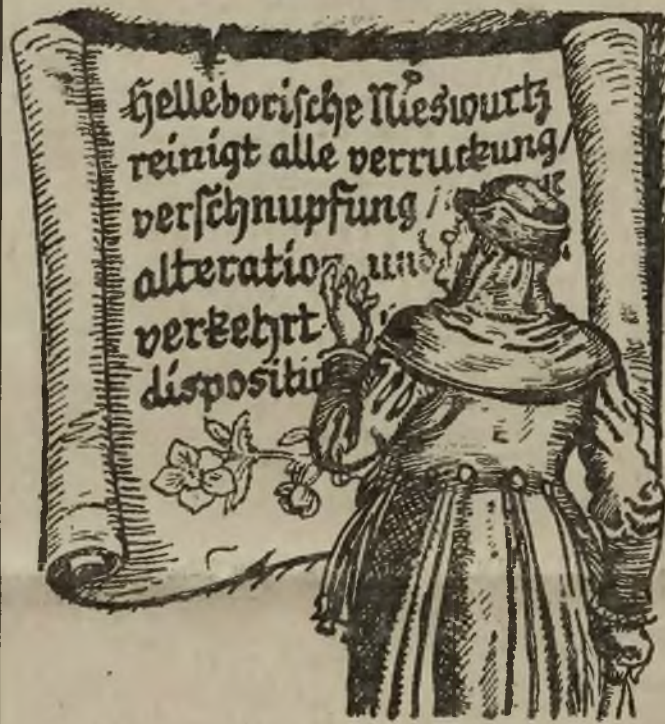 Helleborische Nieswurtz
reinigt alle verruckung/
verschnupfung /
alteration und
verkehrt
dispositio